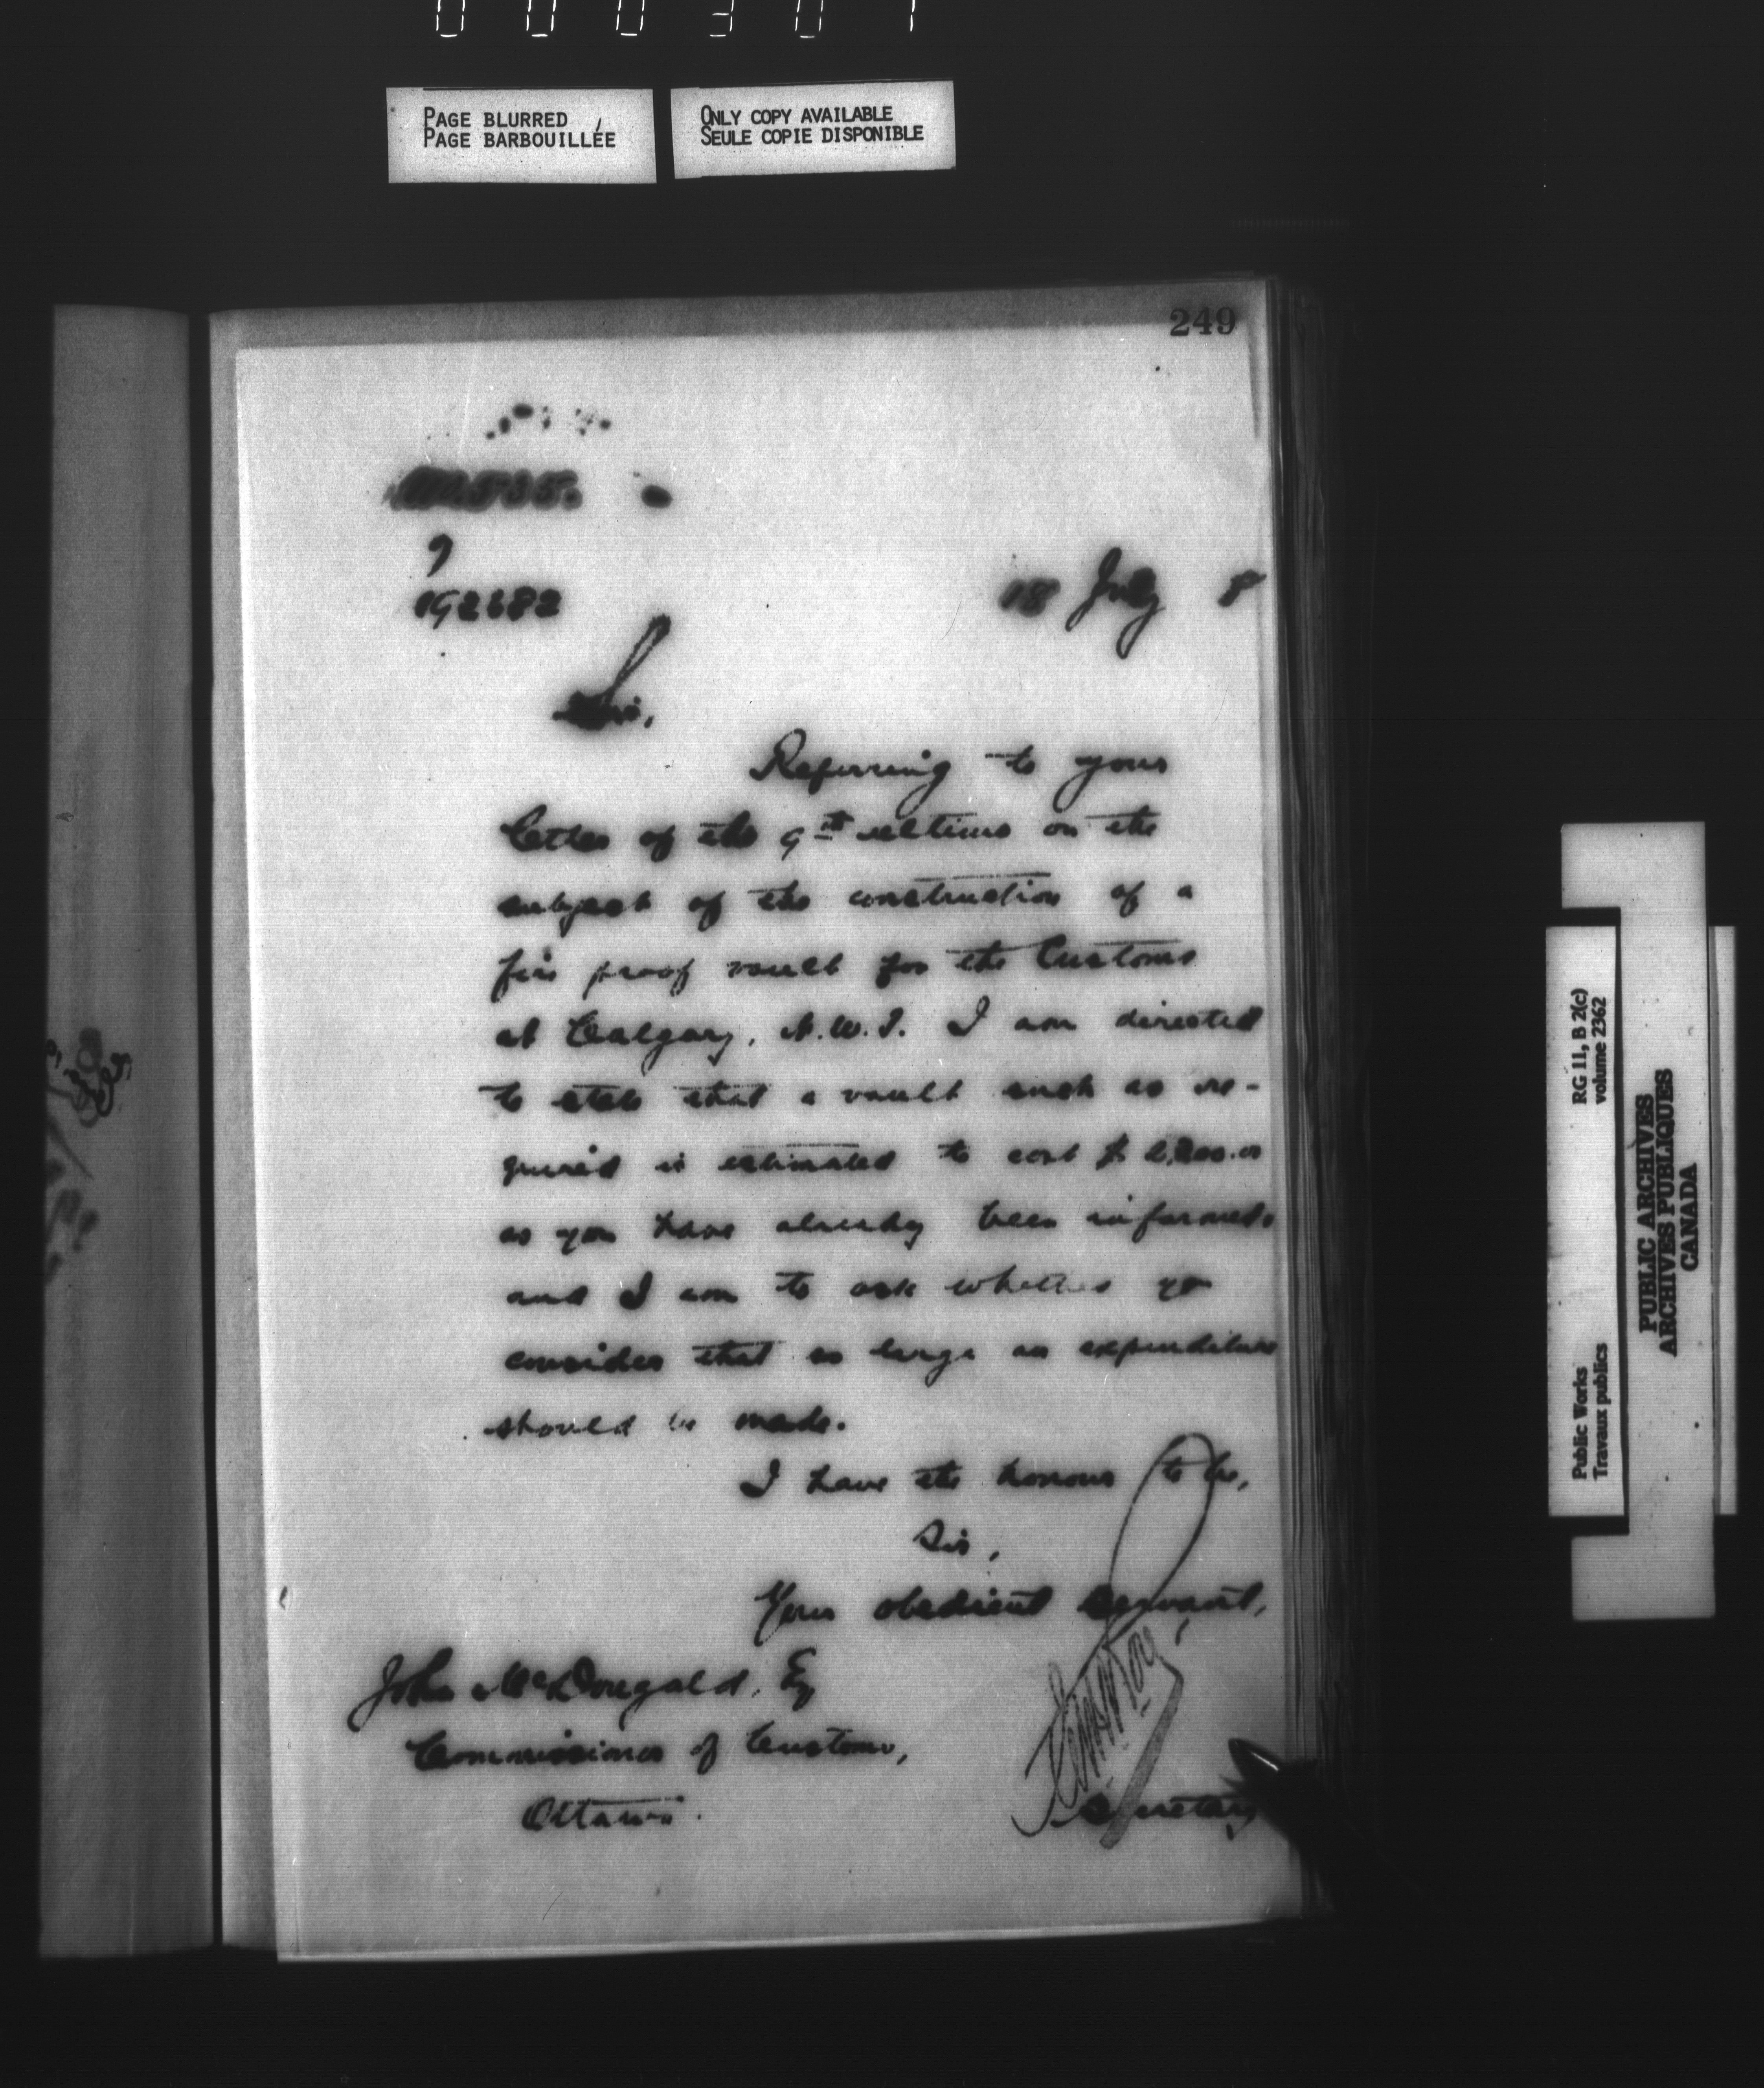 PAGE BLURRED
PAGE BARBOUILLÉE
ONLY COPY AVAILABLE
SEULE COPIE DISPONIBLE
249
535.
192682
18 July 8
Sir,
Referring to your
letter of the 9th ultimo on the
subject of the construction of a
fire proof vault for the Customs
at Calgary, N.W.T. I am directed
to state that a vault such as re-
quired is estimated to cost $
as you have already been informed
and I am to ask whether yo
consider that so large an expenditure
should be made.
I have the honour to be,
Sir,
Your obedient servant,
John McDougald, Esq
Commissioner of Customs,
Ottawa.
Secretary
RG 11, B 2(c)
volume 2362
Public Works
Travaux publics
PUBLIC ARCHIVES
ARCHIVES PUBLIQUES
CANADA